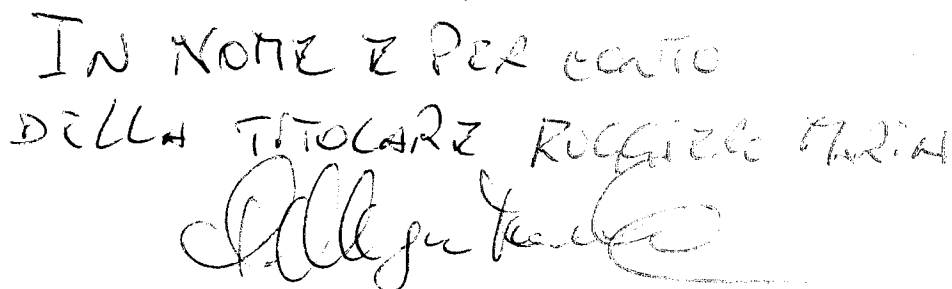 IN NOME E PER CONTO
DELLA TITOLARE RUGGIERO MARIN